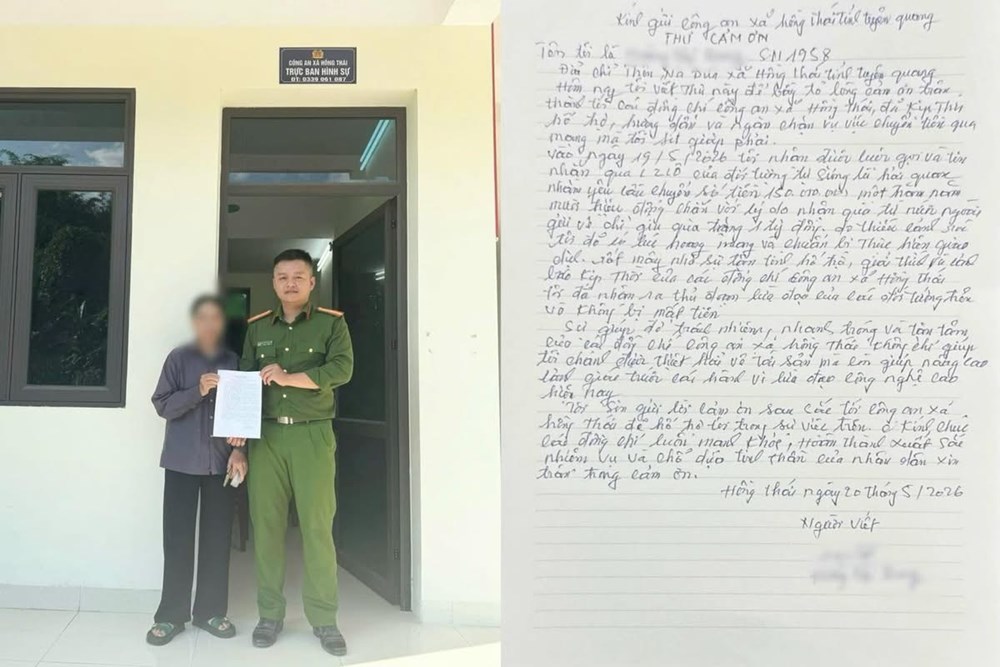 CÔNG AN XÃ HỒNG THÁI
TRỰC BAN HÌNH SỰ
ĐT: 0339 061 087
Kính gửi công an xã hồng thái tỉnh tuyên quang
THƯ CẢM ƠN
Tôn tôi là SN 1958
Địa chỉ Thôn Na Dua xã Hồng thái tỉnh tuyên quang
Hôm nay tôi viết Thư này để bày tỏ lòng cảm ơn trân
thành tới các đồng chí công an xã Hồng Thái, đã Kịp Thời
hỗ trợ, hướng dẫn và ngăn chặn vụ việc chuyển tiền qua
mạng mà tôi sự giáp phải.
vào ngày 19/5/2026 tôi nhận được cuộc gọi và tin
nhắn qua của đối tượng tự sưng là hải quan
nhằm yêu cầu chuyển số tiền 150.000.000 một trăm năm
mươi triệu đồng chẵn với lý do nhận quà từ nước ngoài
gửi về chi gửi quà 1 tỷ đồng. do thiếu cảnh
tôi đã có lúc hoang mang và chuẩn bị Thực hiện giao
dịch. rất may nhờ sự tận tình hỗ trợ, giải thích và
báo Kịp Thời của các đồng chí công an xã Hồng Thái
tôi đã nhận ra thủ đoạn lừa đảo của các đối tượng trên
và không bị mất tiền
Sự giúp đỡ trách nhiệm, nhanh tróng và tận tâm
của các đồng chí công an xã hồng Thái không chỉ giúp
tôi chánh được thiệt hại về tài sản mà còn giúp nâng cao
cảnh giác trước các hành vi lừa đảo công nghệ cao
hiện nay
Tôi Sin gửi lời cảm ơn sau sắc tới công an xã
hồng thái đã hỗ trợ tôi trong sự việc trên. Kính chúc
các đồng chí luôn mạnh khỏe, Hoàn Thành xuất sắc
nhiệm vụ và chỗ dựa tinh thần của nhân dân xin
trân trọng cảm ơn.
Hồng thái ngày 20 tháng 5/2026
Người viết